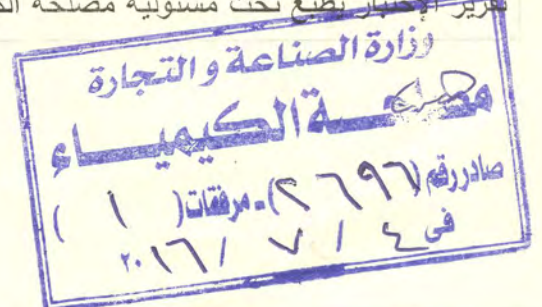 تقرير الإختبار يطبع تحت مسئولية مصلحة
وزارة الصناعة والتجارة
مصلحة الكيمياء
صادر رقم (٢٦٩٦)ـ مرفقات ( ١ )
فى ٤ / ٧ / ٢٠١٦